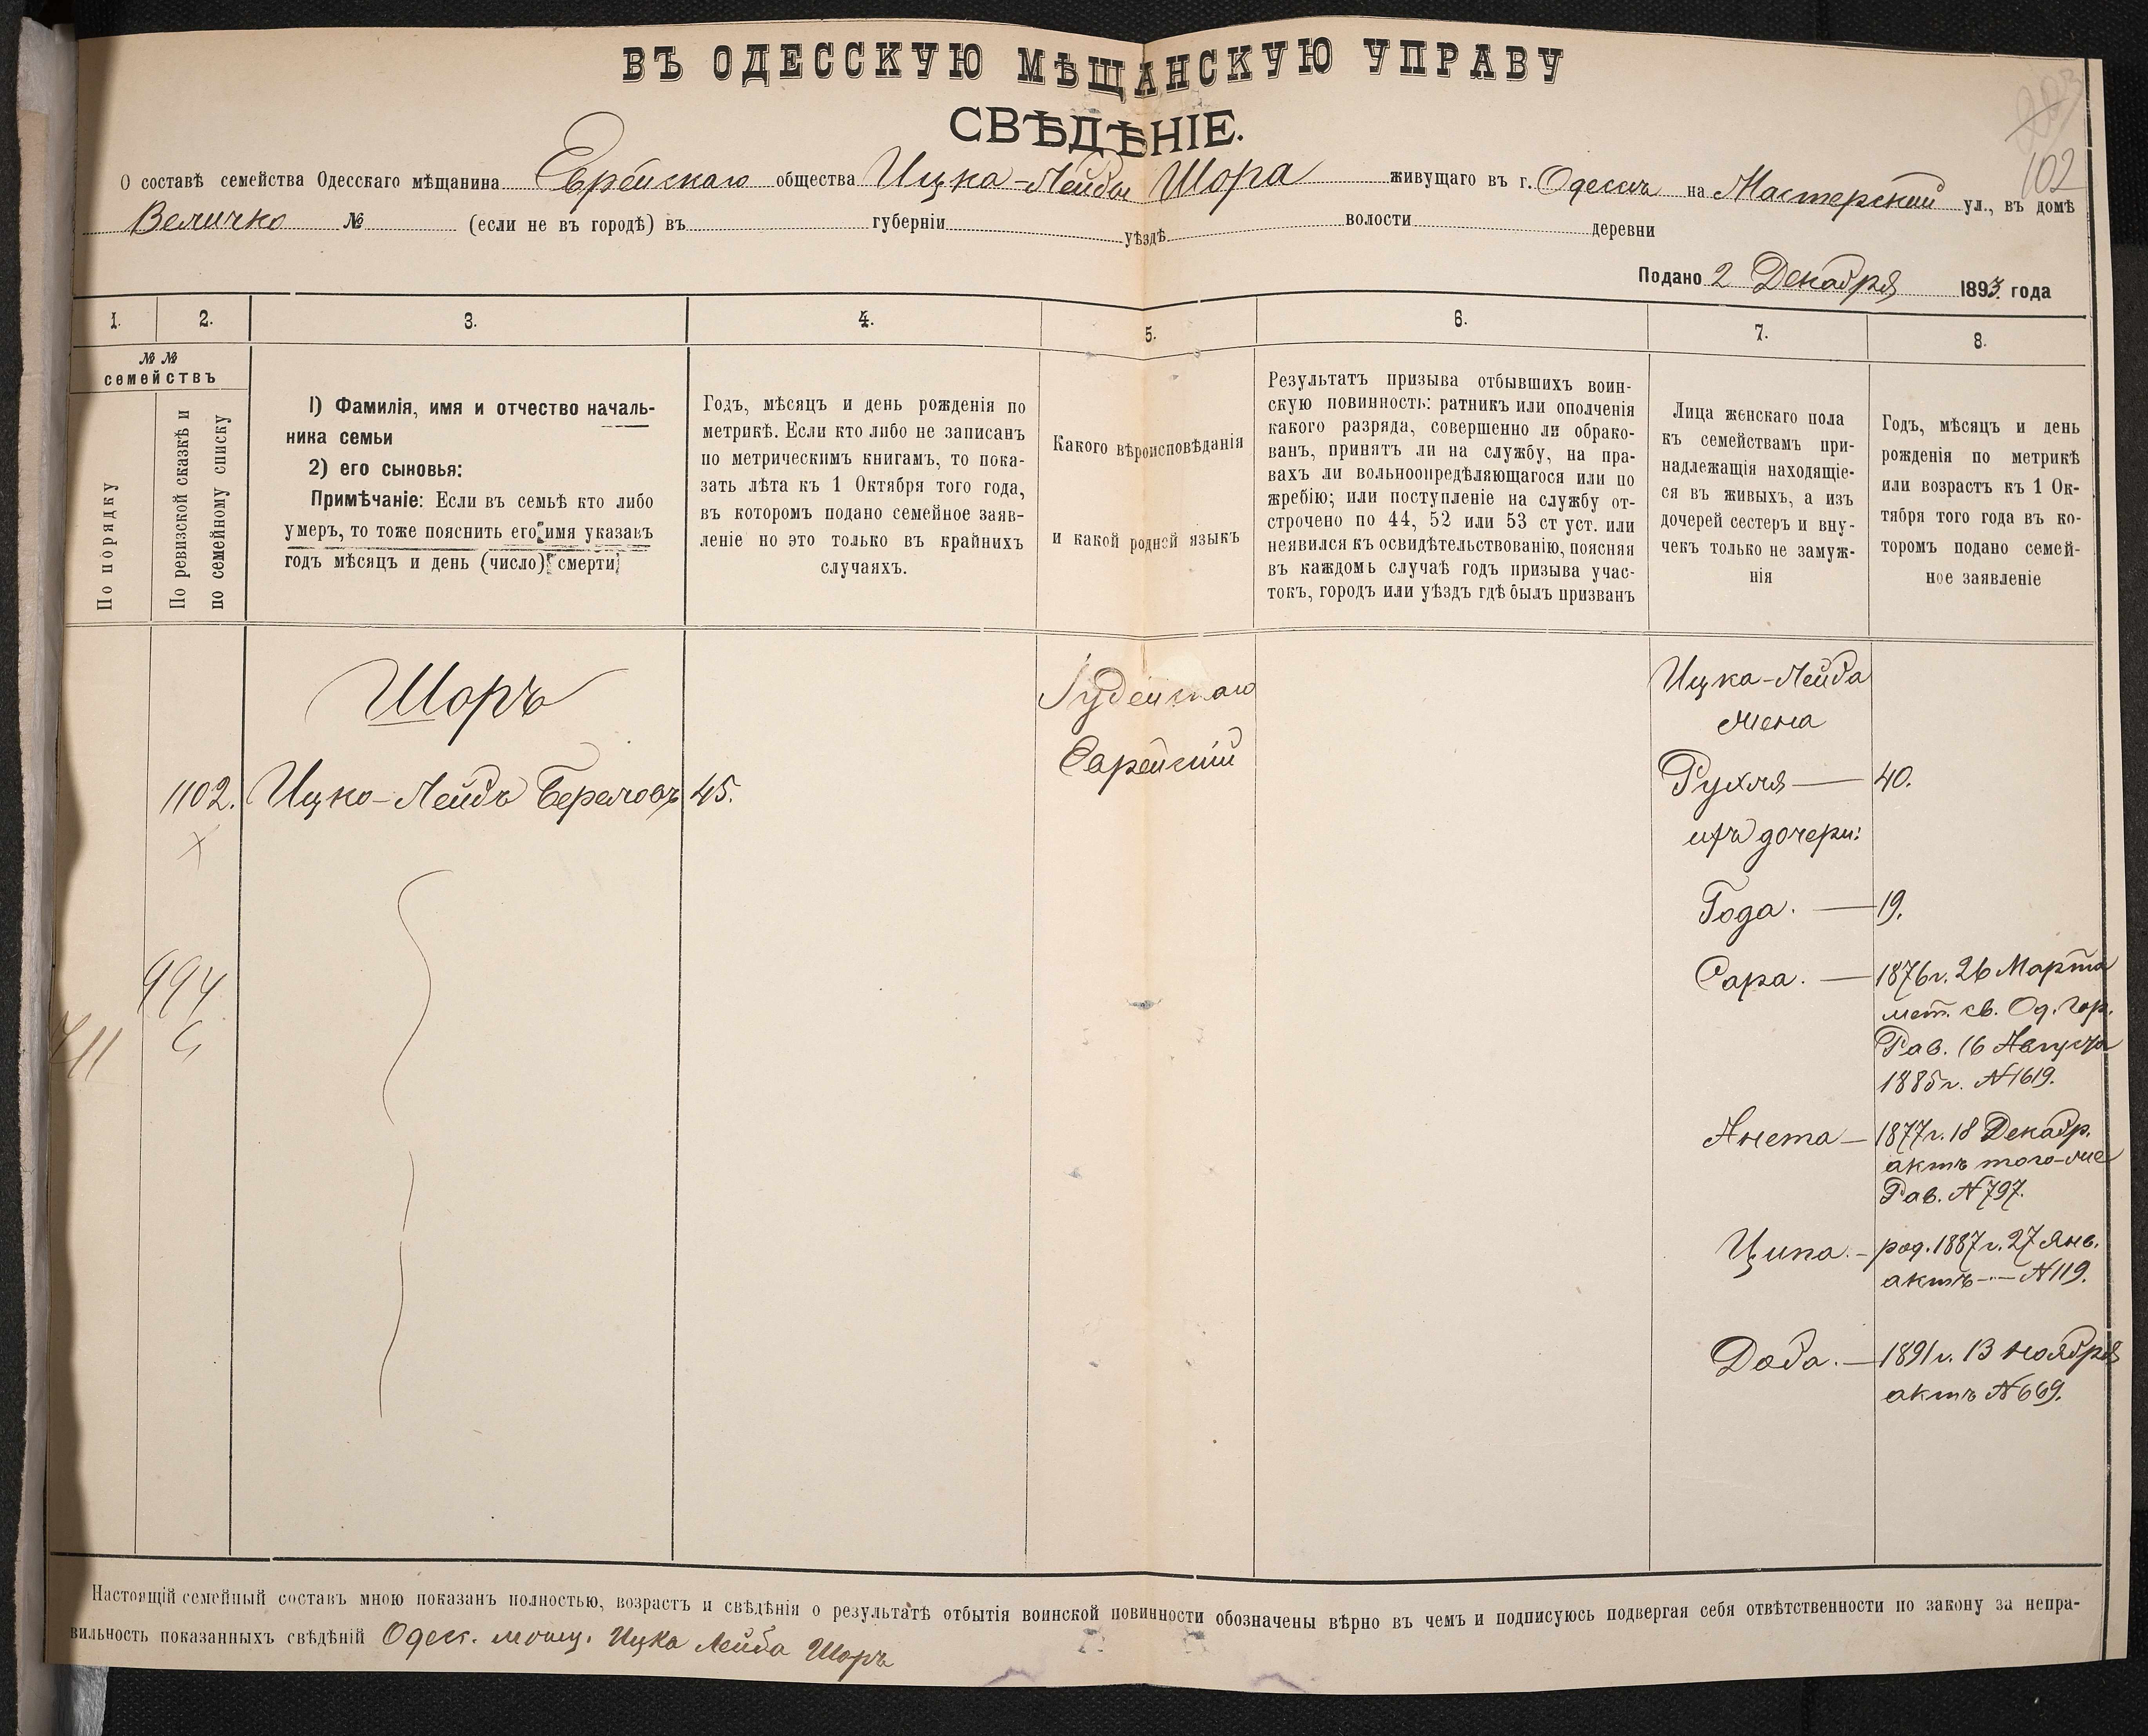 ВЪ ОДЕССКУЮ МѢЩАНСКУЮ УПРАВУ
СВѢДѢНІЕ.
102
О составѣ семейства Одесскаго мѣщанина Еврейскаго общества Ицка-Лейбы Шора живущаго въ г. Одессѣ на Мастерской ул., въ домѣ
Величко № (если не въ городѣ) въ губерніи уѣздѣ волости деревни
Подано 2 Декабря 1893 года
1. 2. 3. 4. 5. 6. 7. 8.
№ №
семействъ
По порядку
По ревизской сказкѣ и
по семейному списку
1) Фамилія, имя и отчество началь-
ника семьи
2) его сыновья:
Примѣчаніе: Если въ семьѣ кто либо
умеръ, то тоже пояснить его имя указавъ
годъ мѣсяцъ и день (число) смерти
Годъ, мѣсяцъ и день рожденія по
метрикѣ. Если кто либо не записанъ
по метрическимъ книгамъ, то пока-
зать лѣта къ 1 Октября того года,
въ которомъ подано семейное заяв-
леніе но это только въ крайнихъ
случаяхъ.
Какого вѣроисповѣданія
и какой родней языкъ
Результатъ призыва отбывшихъ воин-
скую повинность: ратникъ или ополченія
какого разряда, совершенно ли обрако-
ванъ, принятъ ли на службу, на пра-
вахъ ли вольноопредѣляющагося или по
жребію; или поступленіе на службу от-
строчено по 44, 52 или 53 ст уст. или
неявился къ освидѣтельствованію, поясняя
въ каждомъ случаѣ годъ призыва учас-
токъ, городъ или уѣздъ гдѣ былъ призванъ
Лица женскаго пола
къ семействамъ при-
надлежащія находящіе-
ся въ живыхъ, а изъ
дочерей сестеръ и вну-
чекъ только не замуж-
нія
Годъ, мѣсяцъ и день
рожденія по метрикѣ
или возрастъ къ 1 Ок-
тября того года въ ко-
торомъ подано семей-
ное заявленіе
Шоръ
1102. Ицко-Лейбъ Берковъ 45.
Іудейскаго
Еврейскій
Ицка-Лейба
жена
Рухля — 40.
ихъ дочери:
Года. — 19.
994
711
Сара. — 1876г. 26 Марта
мет. св. Од. Гор.
Рав. 16 Августа
1885г. №1619.
Анета — 1877г. 18 Декабр.
актъ того-же
Рав. №797.
Ципа. — род. 1887г. 27 Янв.
актъ — №119.
Доба. — 1891г. 13 ноября
актъ №669.
Настоящій семейный составъ мною показанъ полностью, возрастъ и свѣдѣнія о результатѣ отбытія воинской повинности обозначены вѣрно въ чемъ и подписуюсь подвергая себя отвѣтственности по закону за непра-
вильность показанныхъ свѣдѣній Одес. мѣщ. Ицка Лейба Шоръ